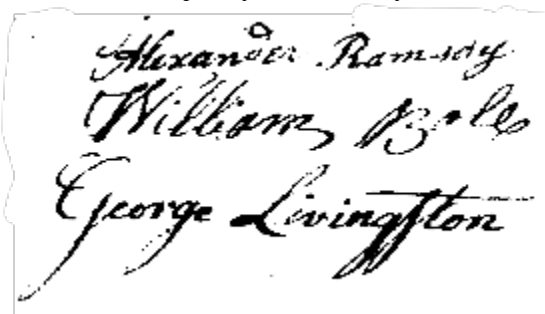 Alexander Ramsay
William Bole
George Livingſton